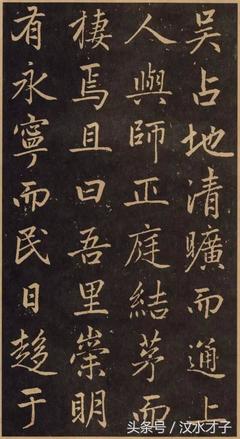 吴占地清曠而通上
人與師正庭結茅而
棲焉且曰吾里崇明
有永寧而民日趍于
头条号／汶水才子